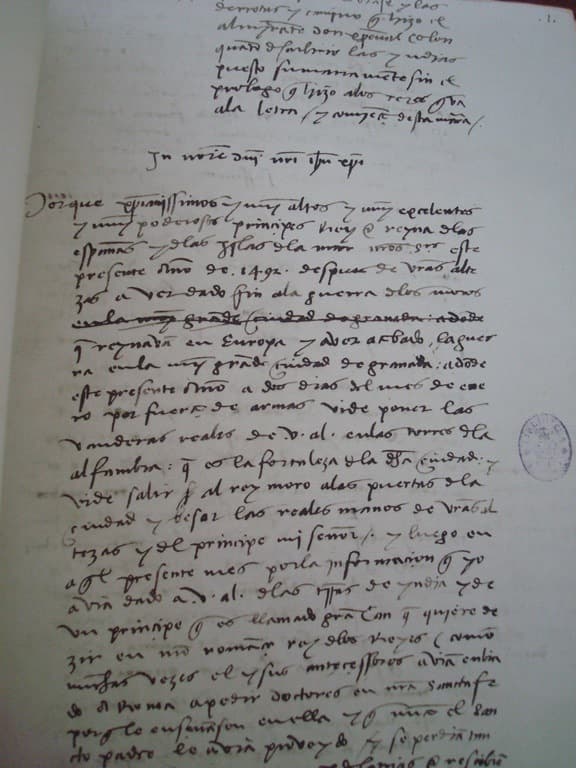 viaje y las
derrotas y camino q̃ hizo el
almirãte don xp̃oual Colon
quãdo descubrio las yndias
puesto sumariamẽte sin el
prologo q̃ hizo alos reyes q̃ va
ala letra / y comiẽça desta manera /.
1.
In noĩe dñi nr̃i ihũ xp̃i
Porque xp̃ianissimos y muy altos y muy excelentes
y muy poderosos principes Rey e reyna delas
españas y delas yslas dela mar nr̃os sres este
presente año de .1492. despues de vr̃as alte
zas aver dado fin ala guerra delos moros
enla muy grande ciudad de granada: adonde
q̃ reynavã en Europa y aver acabado la gue
rra enla muy grande ciudad de granada: adõde
este presente año a dos dias del mes de ene
ro por fuerça de armas vide poner las
vanderas reales de v. al. enlas torres dla
alfambra: q̃ es la fortaleza dela dha ciudad: y
vide salir al rey moro alas puertas dela
ciudad y besar las reales manos de vr̃as al
tezas y del principe mi señor /. y luego en
aql presente mes por la informacion q̃ yo
avia dado a .v. al. delas trr̃as de yndia y de
un principe q̃ es llamado grã Can q̃ quiere de
zir en nr̃o romançe rey delos reyes / como
muchas vezes el y sus anteçessores aviã enbia
do a Roma a pedir doctores en nr̃a sancta fe
porq̃ le enseñasen en ella y q̃ nũca el san
cto padre le avia proveydo / y se perdiã tan